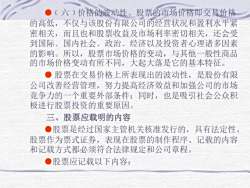 ●(六)价格的波动性。股票的市场价格即交易价格
的高低，不仅与该股份有限公司的经营状况和盈利水平紧
密相关，而且也和股票收益及市场利率密切相关，还会受
到国际、国内社会、政治、经济以及投资者心理诸多因素
的影响。所以，股票市场价格的变动，与其他一般性商品
的市场价格变动有所不同，大起大落是它的基本特征。
●股票在交易价格上所表现出的波动性，是股份有限
公司改善经营管理，努力提高经济效益和加强公司的市场
竞争力的一个重要外部条件；同时，也是吸引社会公众积
极进行股票投资的重要原因。
三、股票应载明的内容
●股票是经过国家主管机关核准发行的，具有法定性，
股票作为票式证券，表现在股票的制作程序、记载的内容
和记载方式都必须符合法律规定和公司章程。
●股票应记载以下内容：